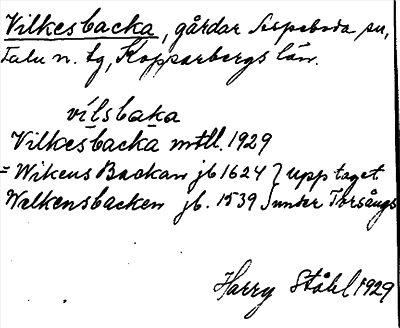 Vilkesbacka, gårdar Aspeboda sn,
Falu n. tg, Kopparbergs län.
vílsbaka
Vilkesbacka mtll. 1929
= Wikens Backan jb 1624 } upptaget
Welkensbacken jb. 1539 } under Torsångs
Harry Ståhl 1929